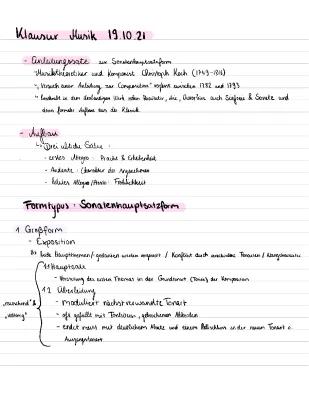 Klausur Musik 19.10.21
- Einleitungssatz zur Sonatenhauptsatzform
Musiktheoretiker und Komponist Christoph Koch (1749-1816)
"Versuch einer Anleitung zur Composition" verfasst zwischen 1782 und 1793
in dem dreibändigen Werk neben auch Sinfonie & Sonate und
dem formalen Aufbau aus der Klassik
- Aufbau
Drei übliche Sätze:
- erstes Allegro: Pracht & Erhabenheit
- Andante: Charakter des Angenehmen
- letztes Allegro/Presto: Fröhlichkeit
Formtypus: Sonatenhauptsatzform
1 Großform
- Exposition
beide Hauptthemen/ werden vorgestellt / Konflikt durch verschiedene Tonarten / 
1.1 Hauptsatz
- Vorstellung des ersten Themas in der Grundtonart (Tonika) der Komposition
1.2 Überleitung
- moduliert nächstverwandte Tonart
- oft gefüllt mit Tonleitern, gebrochenen Akkorden
- endet meist mit deutlichem Absatz und einem Halbschluss in der neuen Tonart o.
Ausgangstonart
"rauschend" &